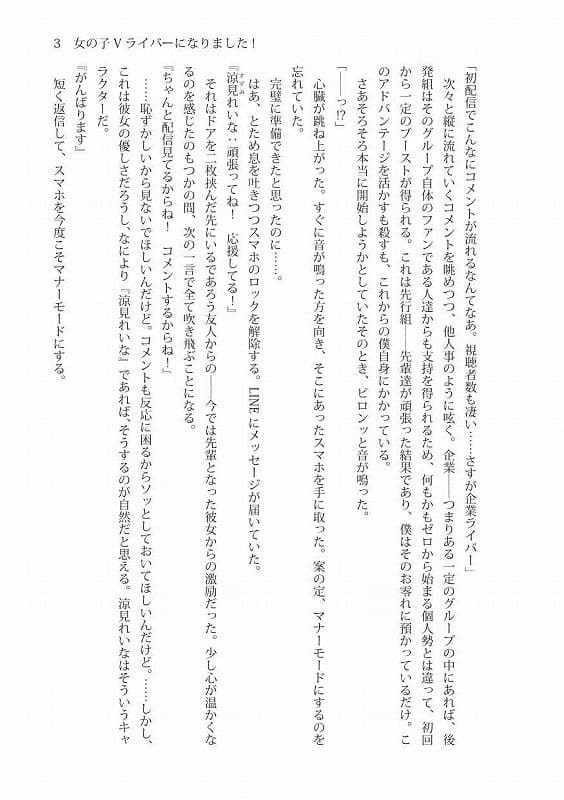 3　女の子Vライバーになりました！
「初配信でこんなにコメントが流れるなんてなあ。視聴者数も凄い……さすが企業ライバー」
次々と縦に流れていくコメントを眺めつつ、他人事のように呟く。企業――つまりある一定のグループの中にあれば、後
発組はそのグループ自体のファンである人達からも支持を得られるため、何もかもゼロから始まる個人勢とは違って、初回
から一定のブーストが得られる。これは先行組――先輩達が頑張った結果であり、僕はそのお零れに預かっているだけ。こ
のアドバンテージを活かすも殺すも、これからの僕自身にかかっている。
さあそろそろ本当に開始しようかとしていたそのとき、ピロンッと音が鳴った。
「――っ!?」
心臓が跳ね上がった。すぐに音が鳴った方を向き、そこにあったスマホを手に取った。案の定、マナーモードにするのを
忘れていた。
完璧に準備できたと思ったのに……。
はあ、とため息を吐きつつスマホのロックを解除する。LINEにメッセージが届いていた。
すずみ
『涼見れいな：頑張ってね！　応援してる！』
それはドアを二枚挟んだ先にいるであろう友人からの――今では先輩となった彼女からの激励だった。少し心が温かくな
るのを感じたのもつかの間、次の一言で全て吹き飛ぶことになる。
『ちゃんと配信見てるからね！　コメントするからね！』
……恥ずかしいから見ないでほしいんだけど。コメントも反応に困るからソッとしておいてほしいんだけど。……しかし、
これは彼女の優しさだろうし、なにより『涼見れいな』であれば、そうするのが自然だと思える。涼見れいなはそういうキャ
ラクターだ。
『がんばります』
短く返信して、スマホを今度こそマナーモードにする。